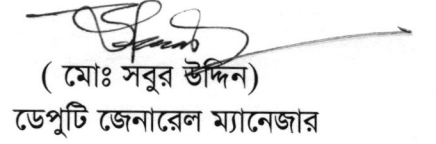 ( মোঃ সবুর উদ্দিন)
ডেপুটি জেনারেল ম্যানেজার